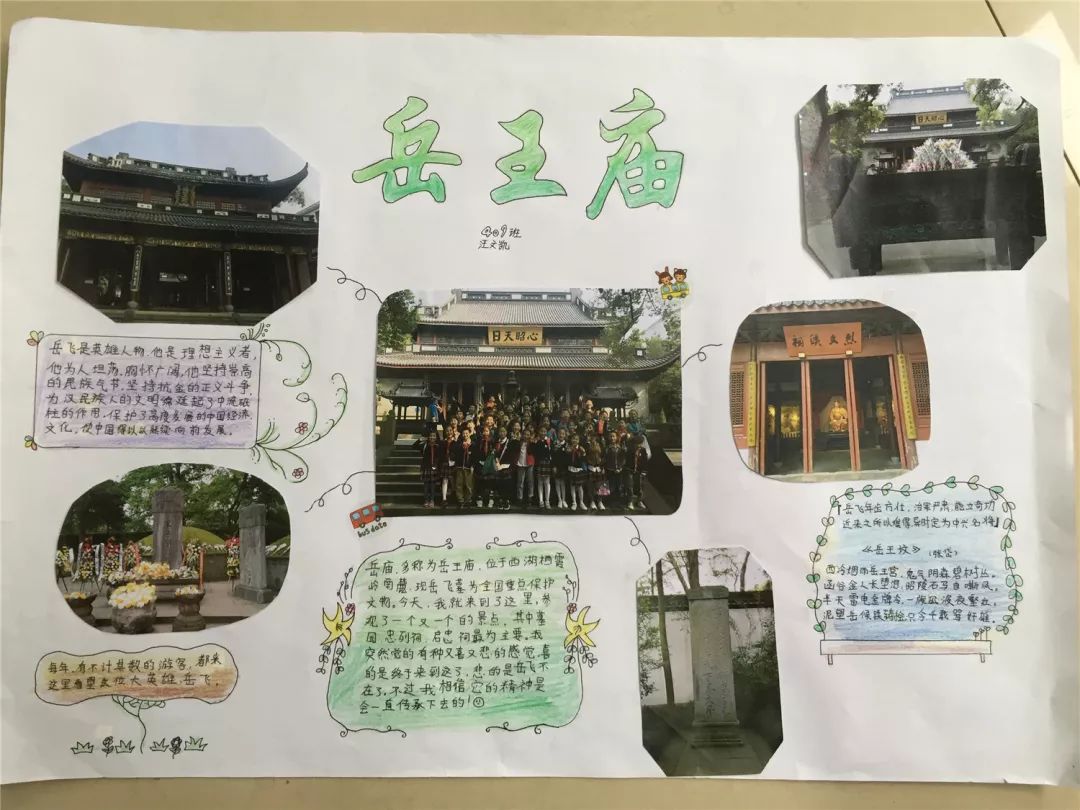 岳王庙
409班
汪文凯
心昭天日
心昭天日
岳飞是英雄人物,他是理想主义者,
他为人坦荡,胸怀广阔,他坚持崇高
的民族气节,坚持抗金的正义斗争,
为汉民族人的文明绵延起了中流砥
柱的作用,保护了高度发展的中国经济
文化,使中国得以以继续向前发展。
烈文侯祠
岳飞年壮方仕,治军严肃,能立奇功
近来之所以难得舁时定为中兴名将
《岳王坟》(张岱)
西泠烟雨岳王宫,鬼气阴森碧树丛。
函谷金人长堕泪,昭陵石马自嘶风。
半天雷电金牌冷,一族风波夜壑红。
泥塑岳侯铁铸桧,只令千载骂奸雄。
bus data
岳庙,多称为岳王庙,位于西湖栖霞
岭南麓,现岳飞墓为全国重点保护
文物。今天,我就来到了这里,参
观了一个又一个的景点,其中墓
园,忠烈祠,启忠祠最为主要。我
突然觉的有种又喜又悲的感觉,喜
的是终于来到这了,悲的是岳飞不
在了,不过我相信,它的精神是
会一直传承下去的!
每年,有不计其数的游客,都来
这里看望这位大英雄岳飞。